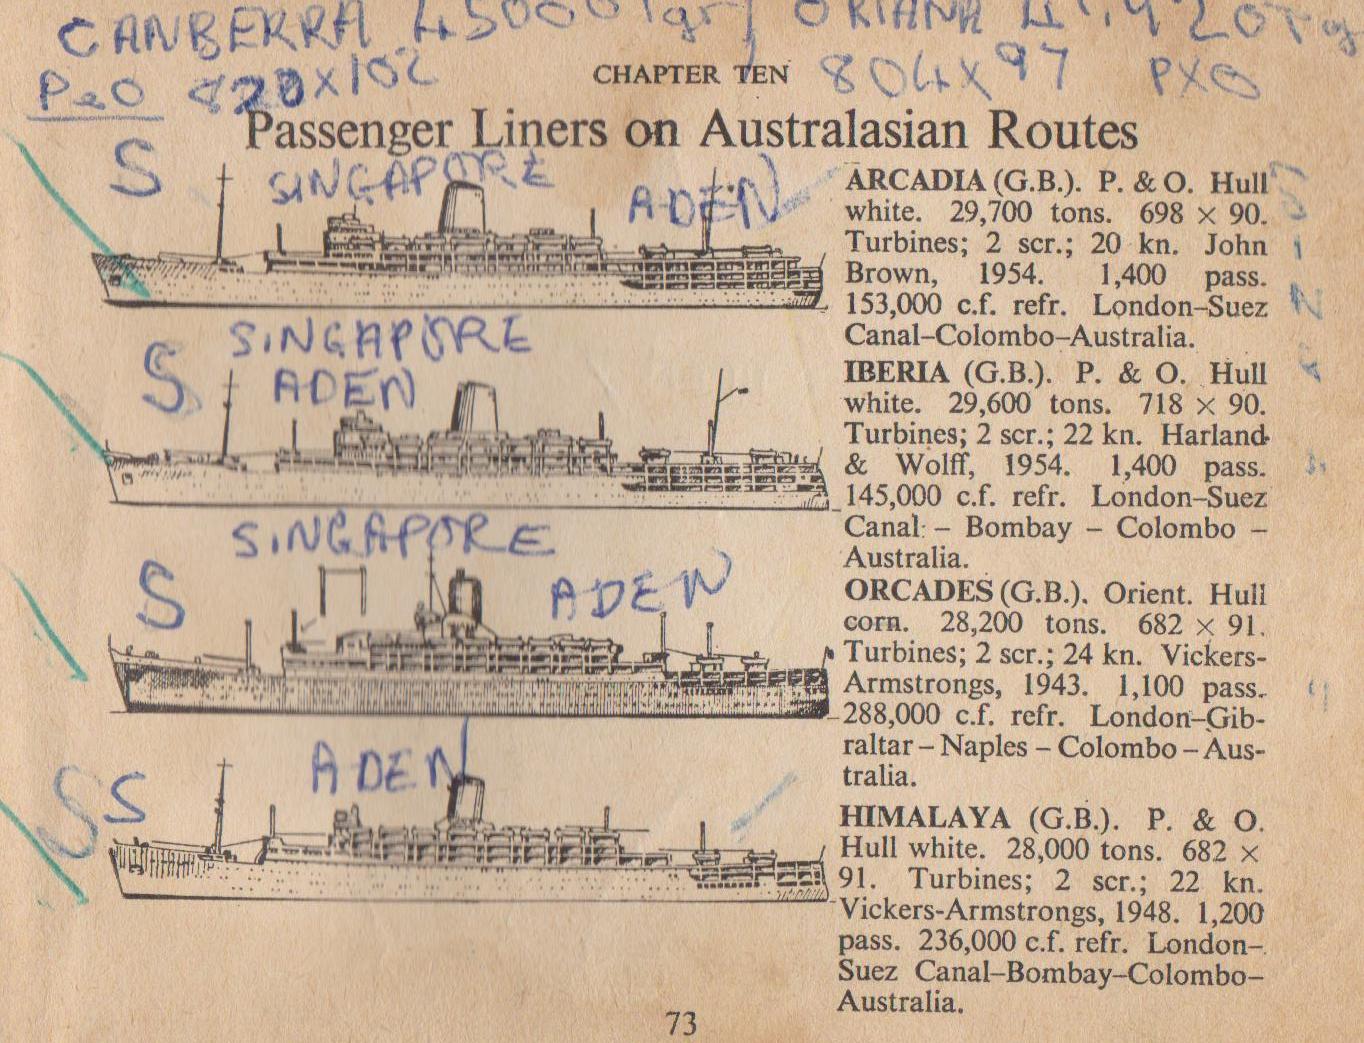 CANBERRA 45000Tgr ORIANA
P&O 820X102
CHAPTER TEN
804X97 PXO
Passenger Liners on Australasian Routes
S SINGAPORE ADEN
ARCADIA (G.B.). P. & O. Hull
white. 29,700 tons. 698 × 90.
Turbines; 2 scr.; 20 kn. John
Brown, 1954. 1,400 pass.
153,000 c.f. refr. London–Suez
Canal–Colombo–Australia.
SINGAPORE
S ADEN
IBERIA (G.B.). P. & O. Hull
white. 29,600 tons. 718 × 90.
Turbines; 2 scr.; 22 kn. Harland
& Wolff, 1954. 1,400 pass.
145,000 c.f. refr. London–Suez
Canal – Bombay – Colombo –
Australia.
SINGAPORE
S ADEN
ORCADES (G.B.). Orient. Hull
corn. 28,200 tons. 682 × 91.
Turbines; 2 scr.; 24 kn. Vickers-
Armstrongs, 1943. 1,100 pass.
288,000 c.f. refr. London–Gib-
raltar – Naples – Colombo – Aus-
tralia.
ADEN
S S
HIMALAYA (G.B.). P. & O.
Hull white. 28,000 tons. 682 ×
91. Turbines; 2 scr.; 22 kn.
Vickers-Armstrongs, 1948. 1,200
pass. 236,000 c.f. refr. London–
Suez Canal–Bombay–Colombo–
Australia.
73